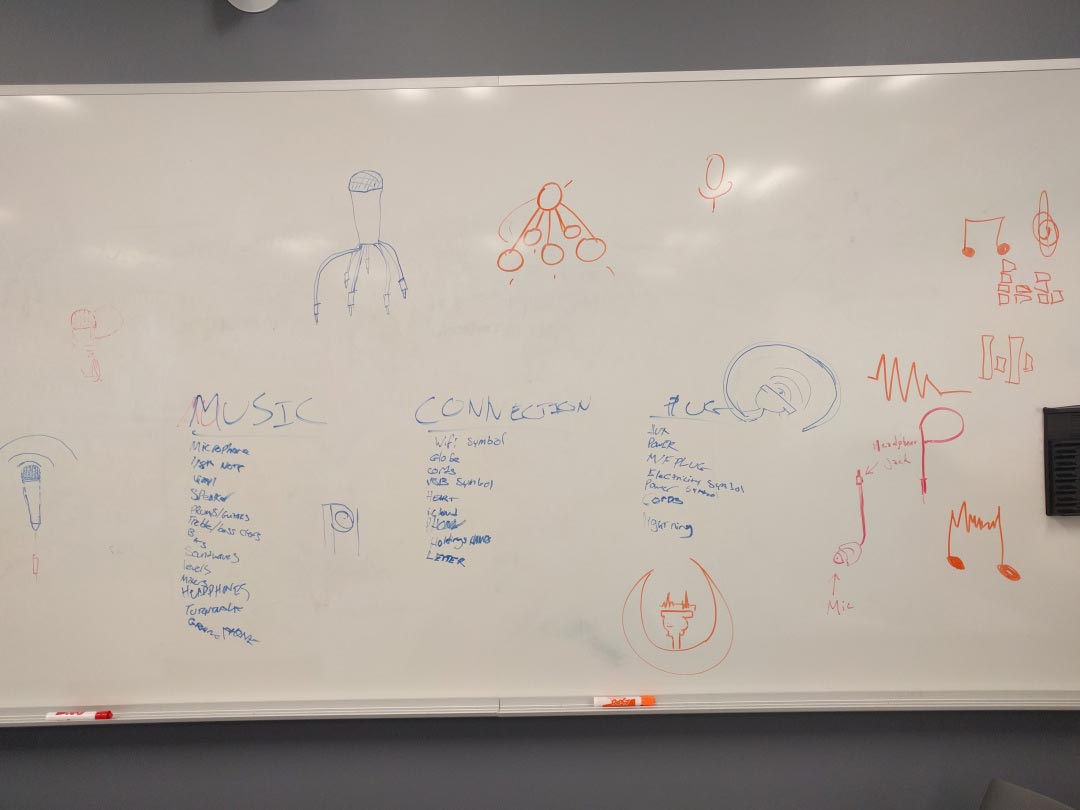 MUSIC
Microphone
Vinyl
Speaker
DRUMS/GUITARS
Treble/bass clefs
Soundwaves
levels
Mixers
HEADPHONES
TURNTABLE
CONNECTION
Wifi symbol
Globe
cords
USB Symbol
HEART
icloud
Holdings HANDS
LETTER
PLUG
AUX
POWER
M/F PLUG
Electricity Symbol
Power symbol
CORDS
lightning
Headphone
Jack
Mic